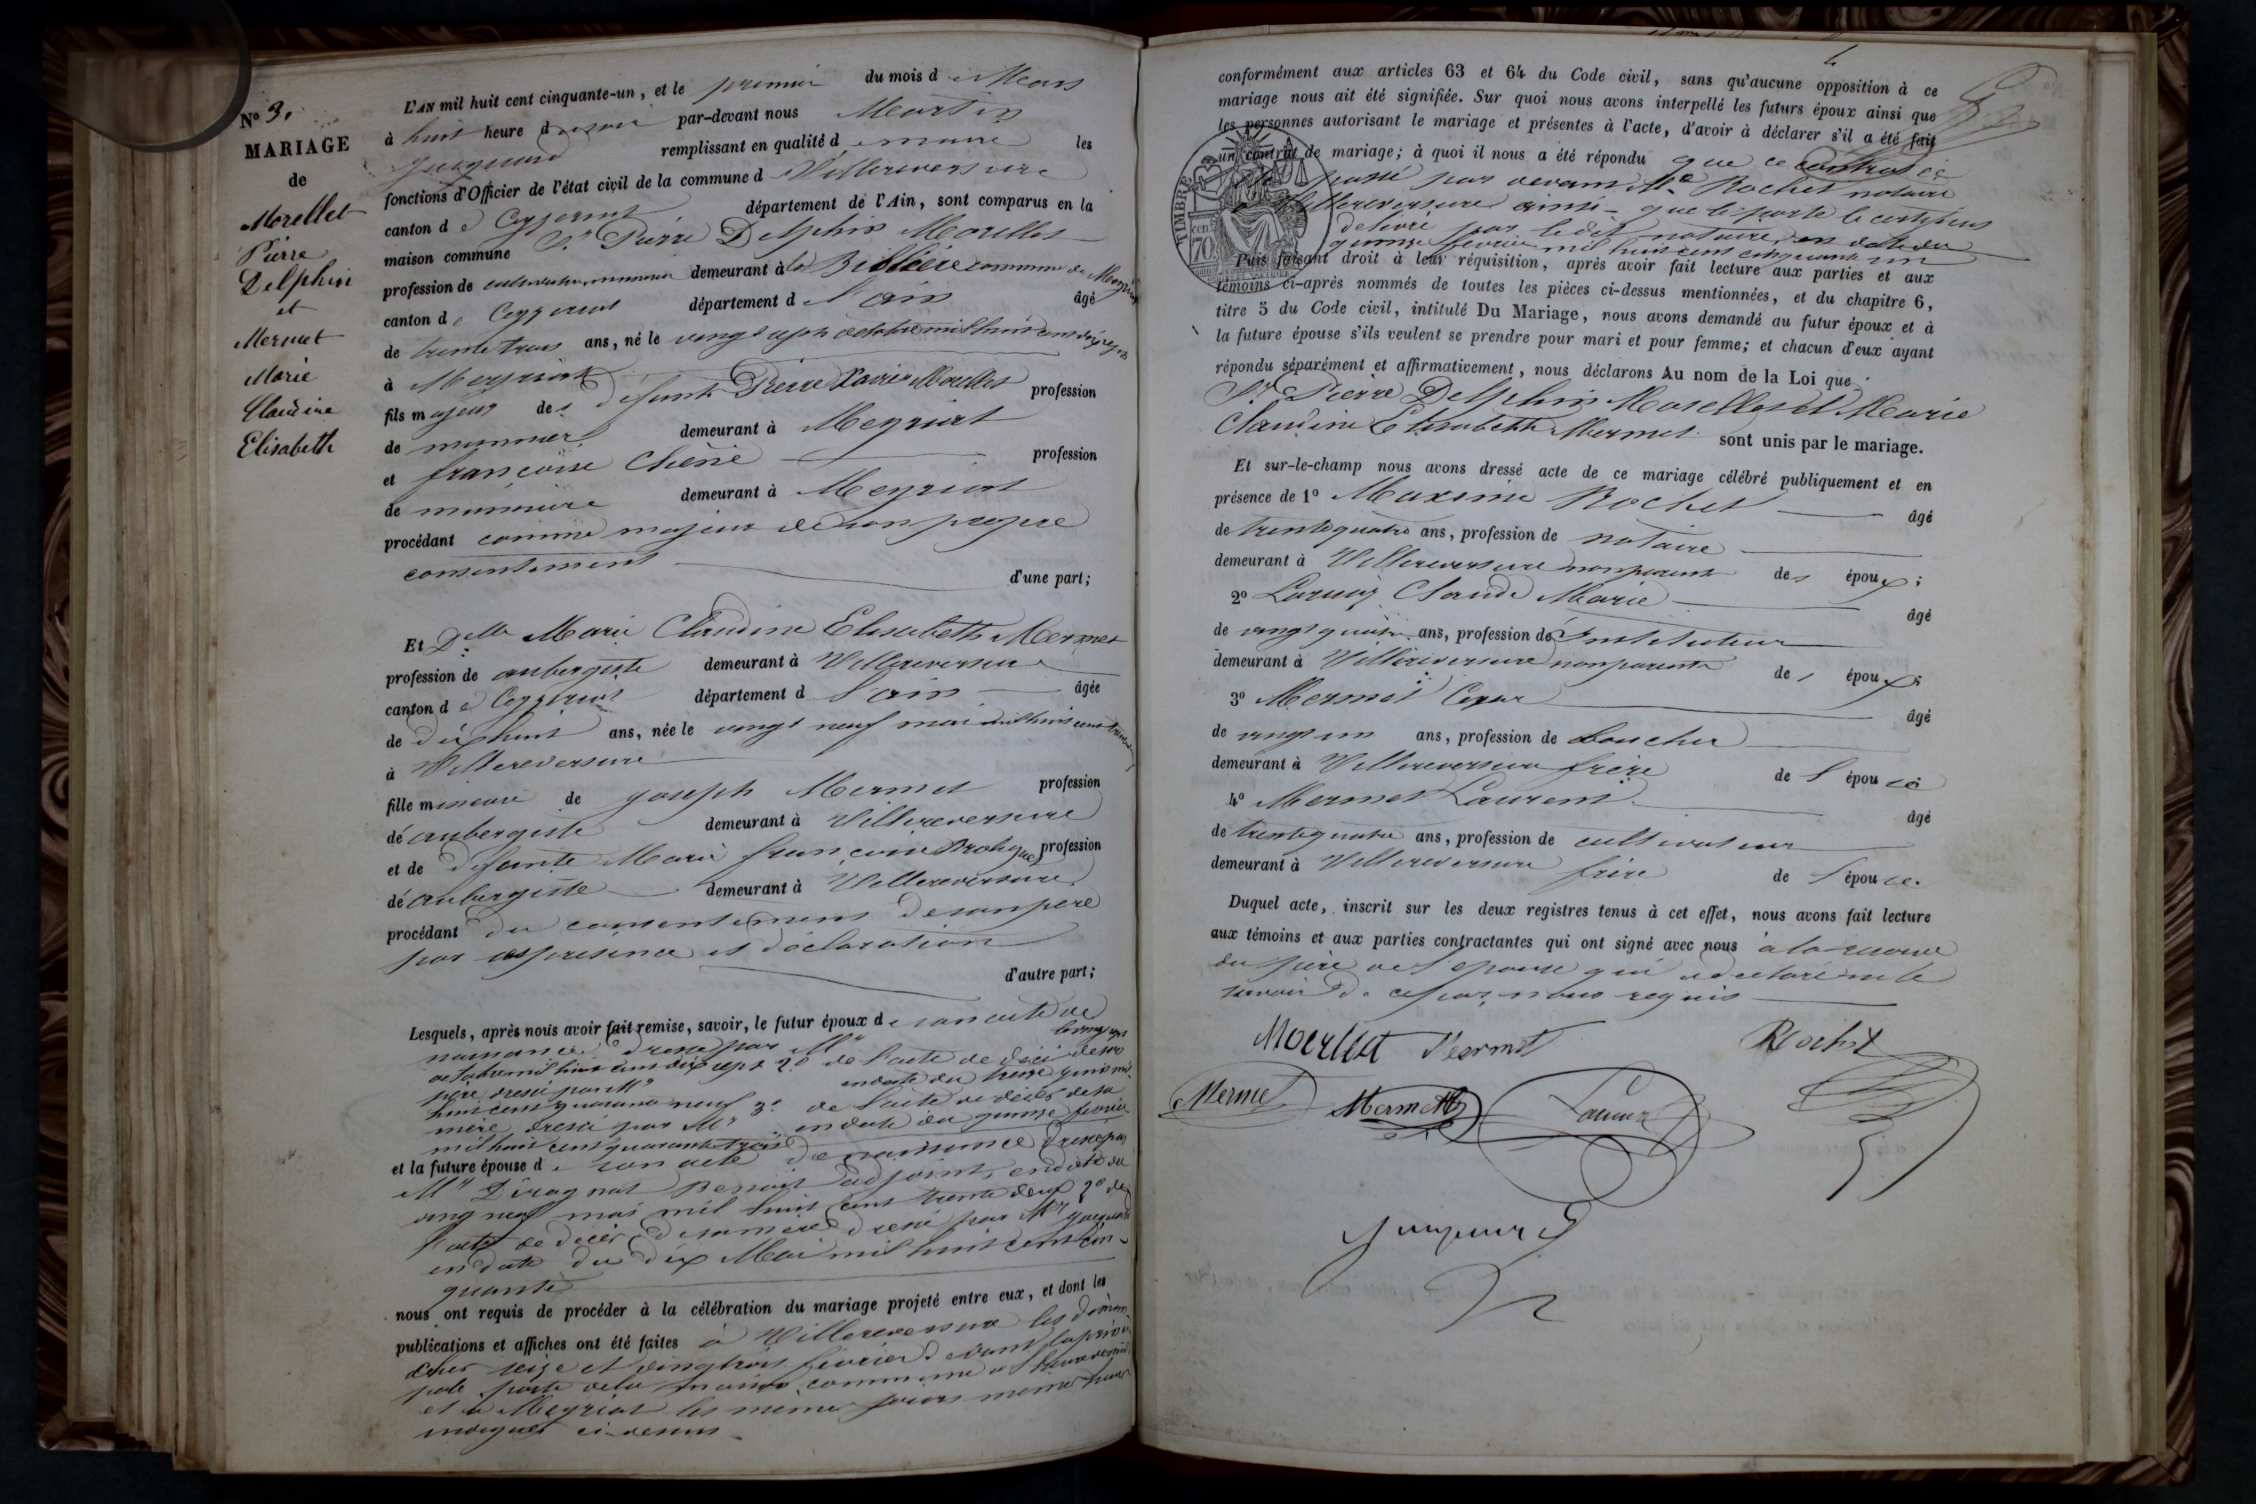 N° 3.
MARIAGE
de
Morellet
Pierre
Delphin
et
Mermet
Marie
Claudine
Elisabeth
L'AN mil huit cent cinquante-un, et le premier du mois de Mars
à huit heure du soir par-devant nous Martin
Jacquand remplissant en qualité de maire les
fonctions d'Officier de l'état civil de la commune de Villereversure
canton de Ceyzeriat département de l'Ain, sont comparus en la
maison commune Sr Pierre Delphin Morellet
profession de cultivateur meunier demeurant à la commune de Meyriat
canton de Ceyzeriat département de l'ain âgé
de trente trois ans, né le vingt sept octobre mil huit cent dix sept
à Meyriat
fils majeur de défunts Pierre Xavier Morellet profession
de meunier demeurant à Meyriat
et françoise Chêne profession
de meunière demeurant à Meyriat
procédant comme majeur de son propre
consentement d'une part;
Et Delle Marie Claudine Elisabeth Mermet
profession de aubergiste demeurant à Villereversure
canton de Ceyzeriat département de l'ain âgée
de dix huit ans, née le vingt neuf mai mil huit cent trente deux
à Villereversure
fille mineure de joseph Mermet profession
de aubergiste demeurant à Villereversure
et de défunte Marie françoise profession
de aubergiste demeurant à Villereversure
procédant du consentement de son père
par sa presence et déclaration
d'autre part;
Lesquels, après nous avoir fait remise, savoir, le futur époux de son acte de
naissance dressé par Mr le vingt sept
octobre mil huit cent dix sept 2° de l'acte de décès de son
père dressé par Mr en date du treize
huit cent quarante neuf 3° de l'acte de décès de sa
mère dressé par Mr en date du quinze février
mil huit cent quarante trois
et la future épouse de son acte de naissance dressé par
Mr Diragnat Benoit adjoint, en date du
vingt neuf mai mil huit cent trente deux 2° de
l'acte de décès de sa mère dressé par Mr Jacquand
en date du dix Mai mil huit cent cin-
quante
nous ont requis de procéder à la célébration du mariage projeté entre eux, et dont les
publications et affiches ont été faites à Villereversure les diman
ches seize et vingt trois février devant la princi
pale porte de la maison commune à
et à Meyriat les mêmes jours même heure
indiqués ci-dessus
conformément aux articles 63 et 64 du Code civil, sans qu'aucune opposition à ce
mariage nous ait été signifiée. Sur quoi nous avons interpellé les futurs époux ainsi que
les personnes autorisant le mariage et présentes à l'acte, d'avoir à déclarer s'il a été fait
un contrat de mariage; à quoi il nous a été répondu que ce contrat a
été passé par devant Me Rochet notaire
à Villereversure ainsi que le porte le certificat
délivré par le dit notaire, en date du
quinze février mil huit cent cinquante un
TIMBRE
70
Puis faisant droit à leur réquisition, après avoir fait lecture aux parties et aux
témoins ci-après nommés de toutes les pièces ci-dessus mentionnées, et du chapitre 6,
titre 5 du Code civil, intitulé Du Mariage, nous avons demandé au futur époux et à
la future épouse s'ils veulent se prendre pour mari et pour femme; et chacun d'eux ayant
répondu séparément et affirmativement, nous déclarons Au nom de la Loi que
Sr Pierre Delphin Morellet et Marie
Claudine Elisabeth Mermet sont unis par le mariage.
Et sur-le-champ nous avons dressé acte de ce mariage célébré publiquement et en
présence de 1° Maxime Rochet âgé
de trente quatre ans, profession de notaire
demeurant à Villereversure non parent des époux;
2° Claude Marie âgé
de vingt quatre ans, profession de Instituteur
demeurant à Villereversure non parent des époux;
3° Mermet Cezar âgé
de vingt un ans, profession de boucher
demeurant à Villereversure frère de l'épouce
4° Mermet Laurent âgé
de trente quatre ans, profession de cultivateur
demeurant à Villereversure frère de l'épouce.
Duquel acte, inscrit sur les deux registres tenus à cet effet, nous avons fait lecture
aux témoins et aux parties contractantes qui ont signé avec nous à la reserve
du père de l'epouse qui a déclaré ne le
savoir de ce par nous requis
Morellet Mermet Rochet
Mermet Mermet
Jacquand